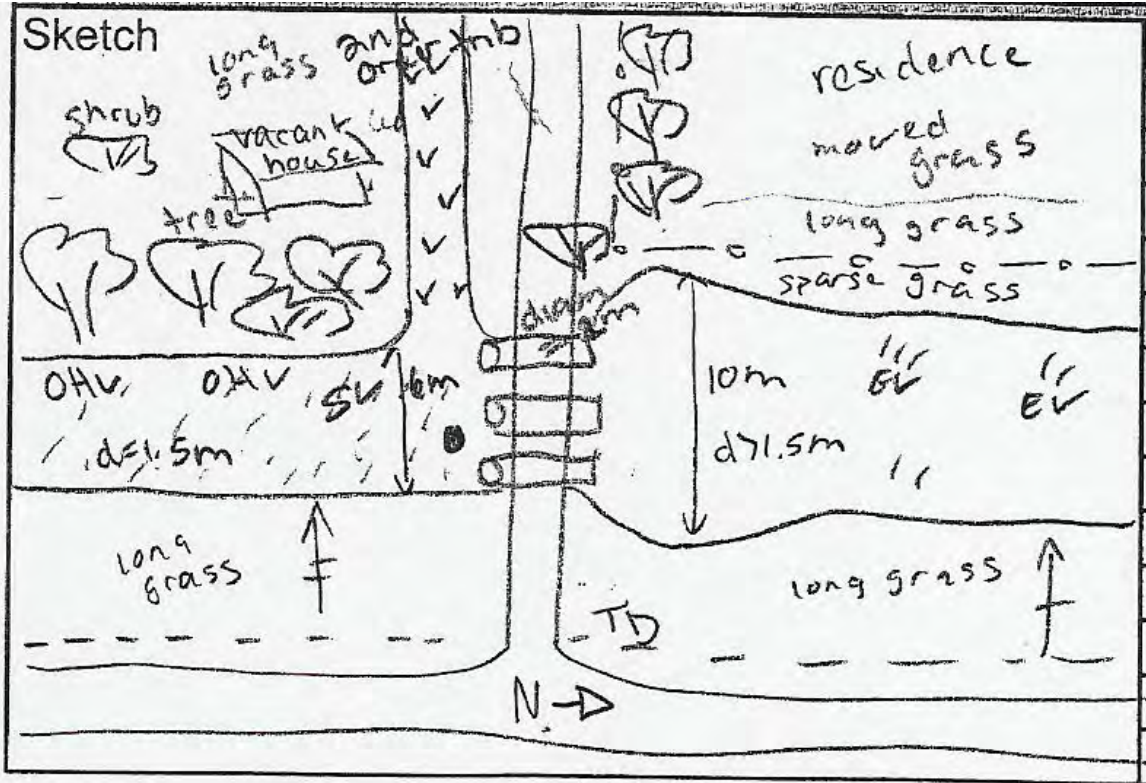 Sketch
long
grass
2nd
order trib
shrub
vacant
house
tree
residence
mowed
grass
long grass
sparse grass
drain
OHV OHV SV 6m
d=1.5m
10m
d>1.5m
EV
EV
long
grass
long grass
TD
N